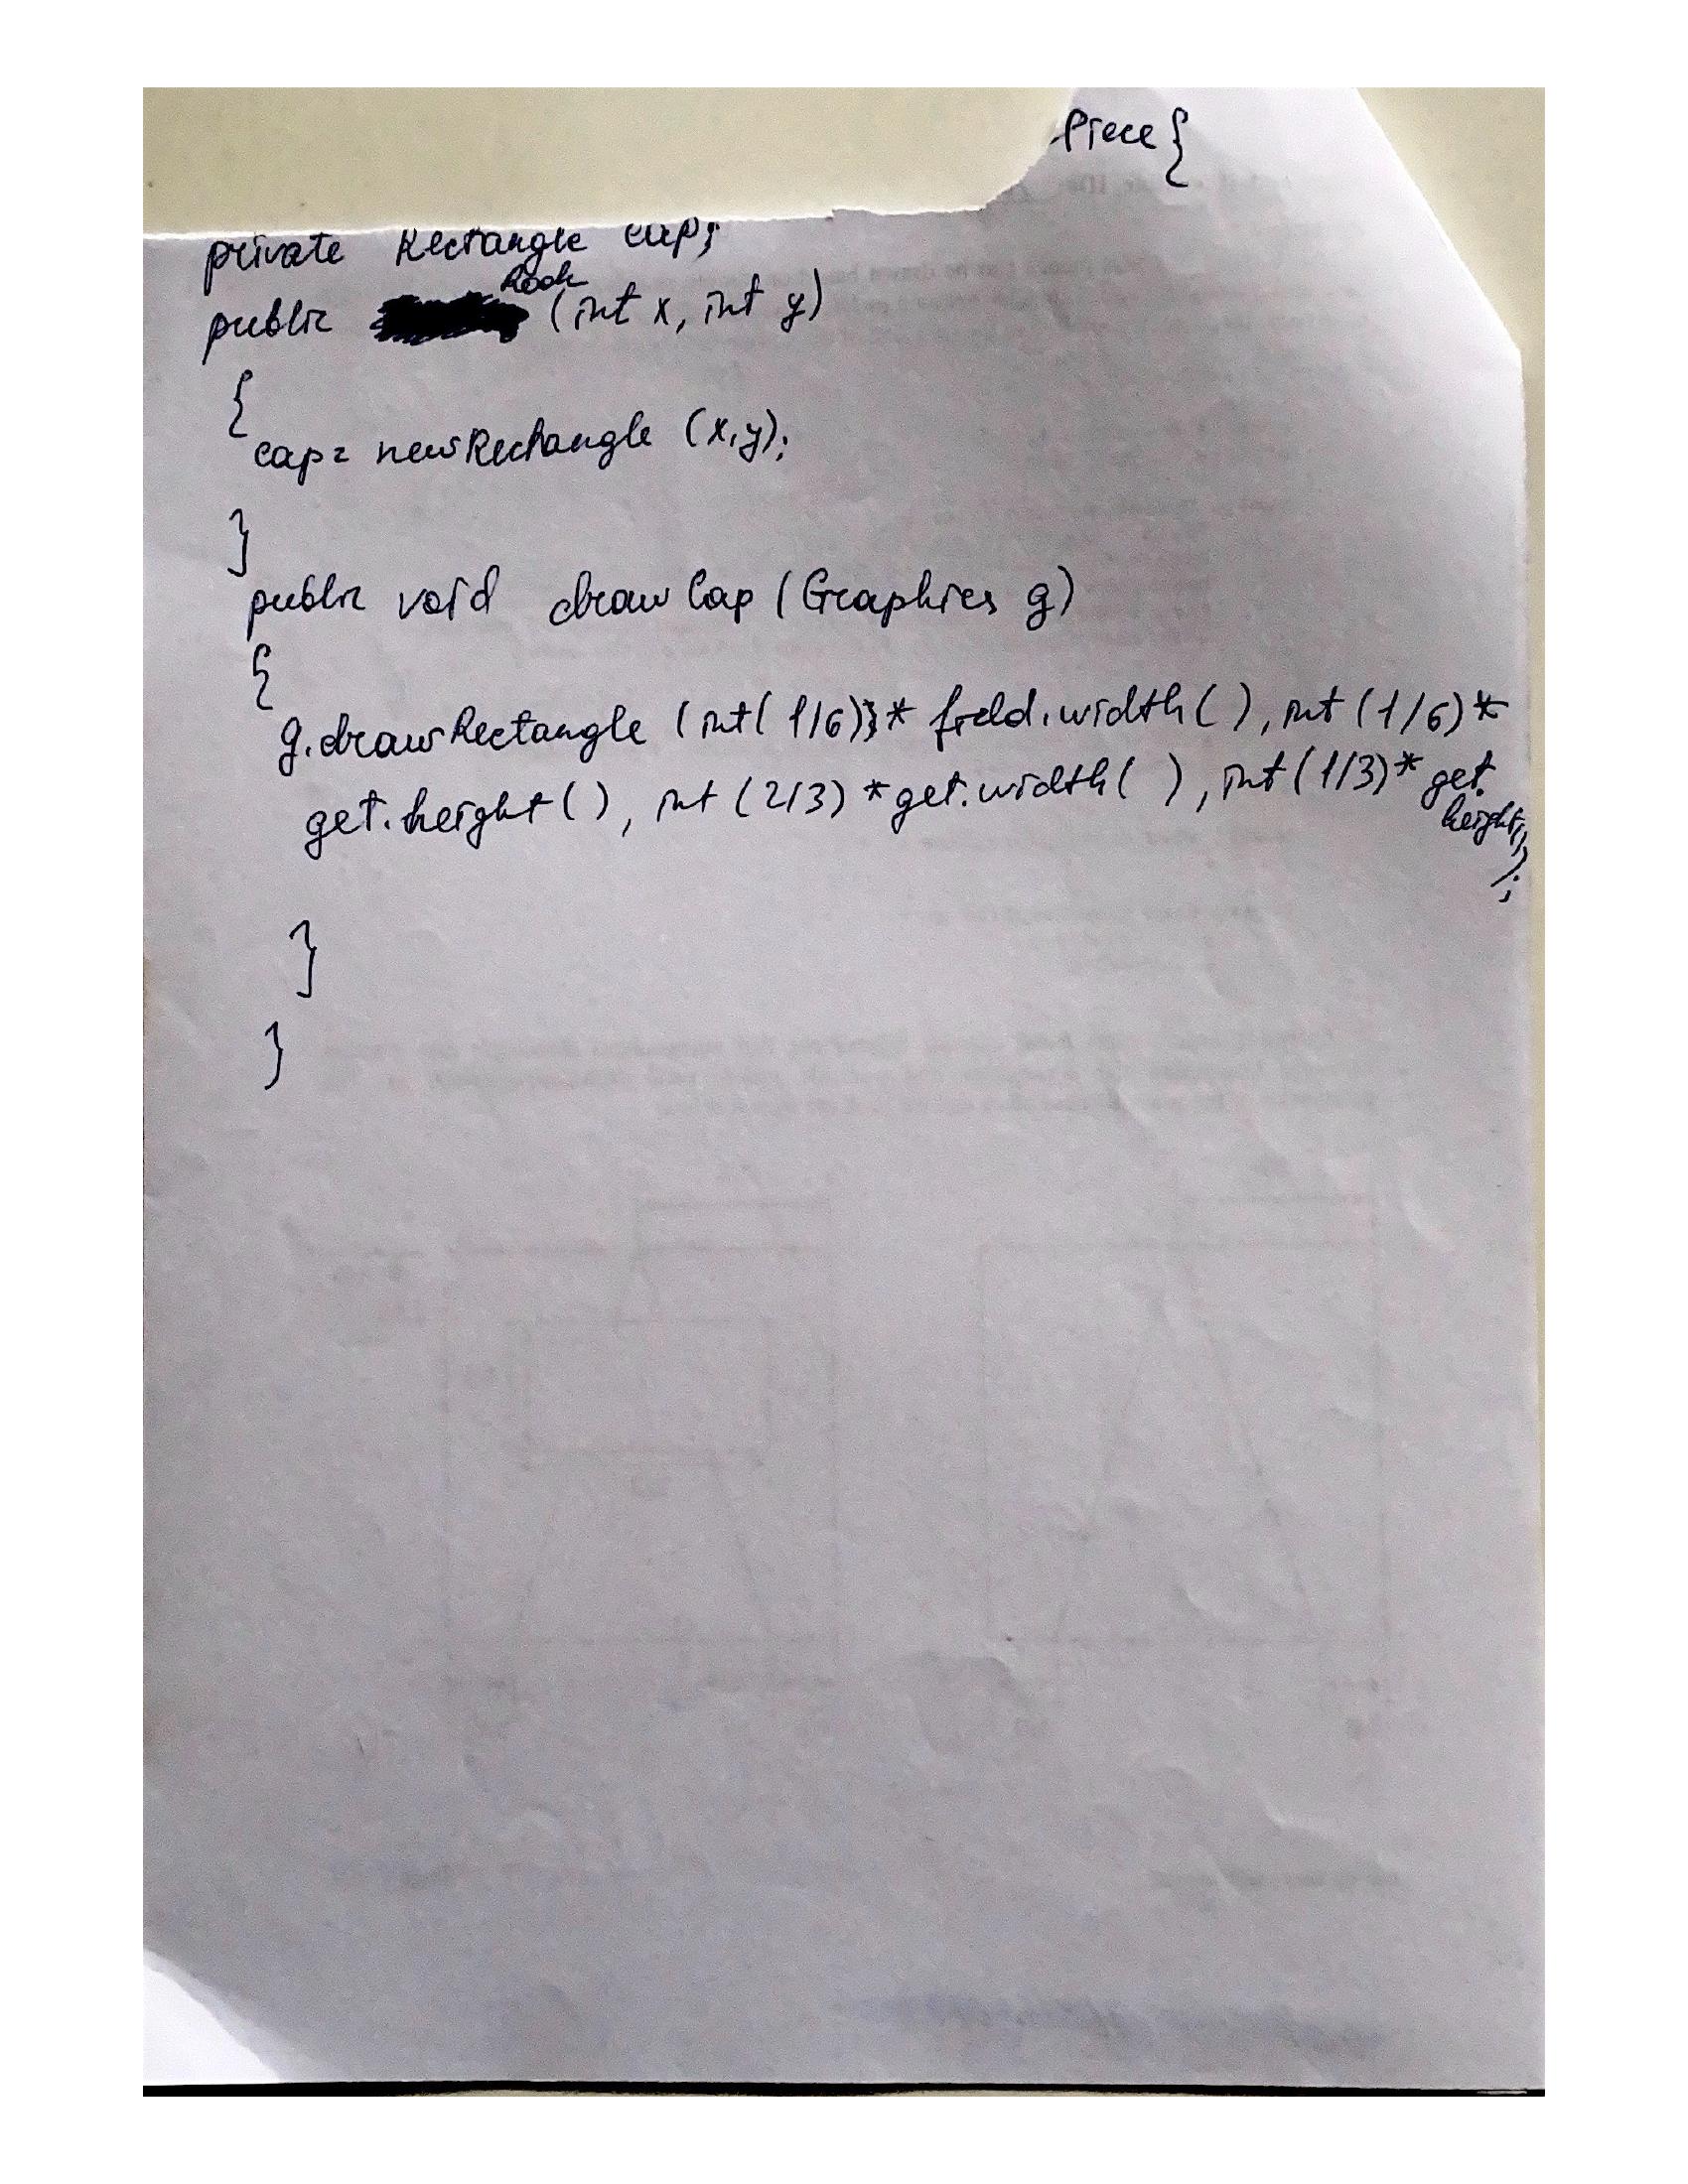 Piece {
private Rectangle cap;
public Rook (int x, int y)
{
cap= new Rectangle (x,y);
}
public void draw Cap (Graphics g)
{
g.drawRectangle (int( 1/6)}* field.width( ), int (1/6)*
get.height( ), int (2/3) *get.width( ), int (1/3)* get.
height,
);
}
}